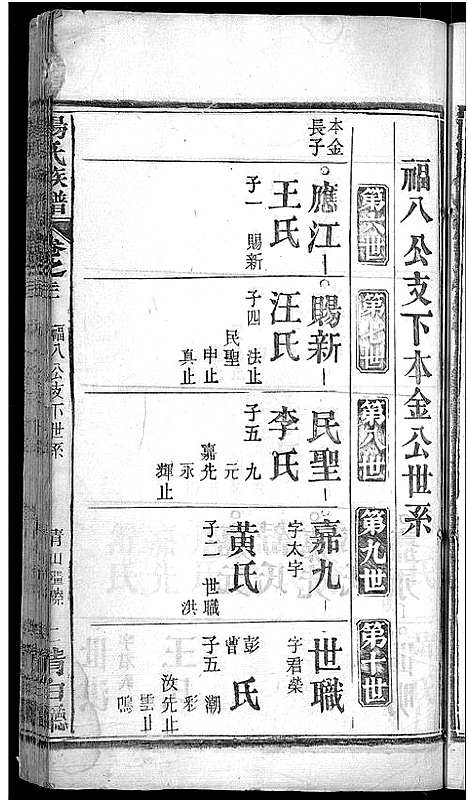 福八公支下本金公世系
第六世
第七世
第八世
第九世
第十世
本金
長子
應江
王氏
子一 賜新
賜新
汪氏
子四 法止
民聖
申止
真止
民聖
李氏
子五 九
嘉先 元
永
輝止
嘉九
字太字
黄氏
子二 世職
洪
世職
字君榮
彭
曾
氏
子五 潮
汝先止 彩
雲止 鳴
楊氏族譜
卷之三
福八公支下世系